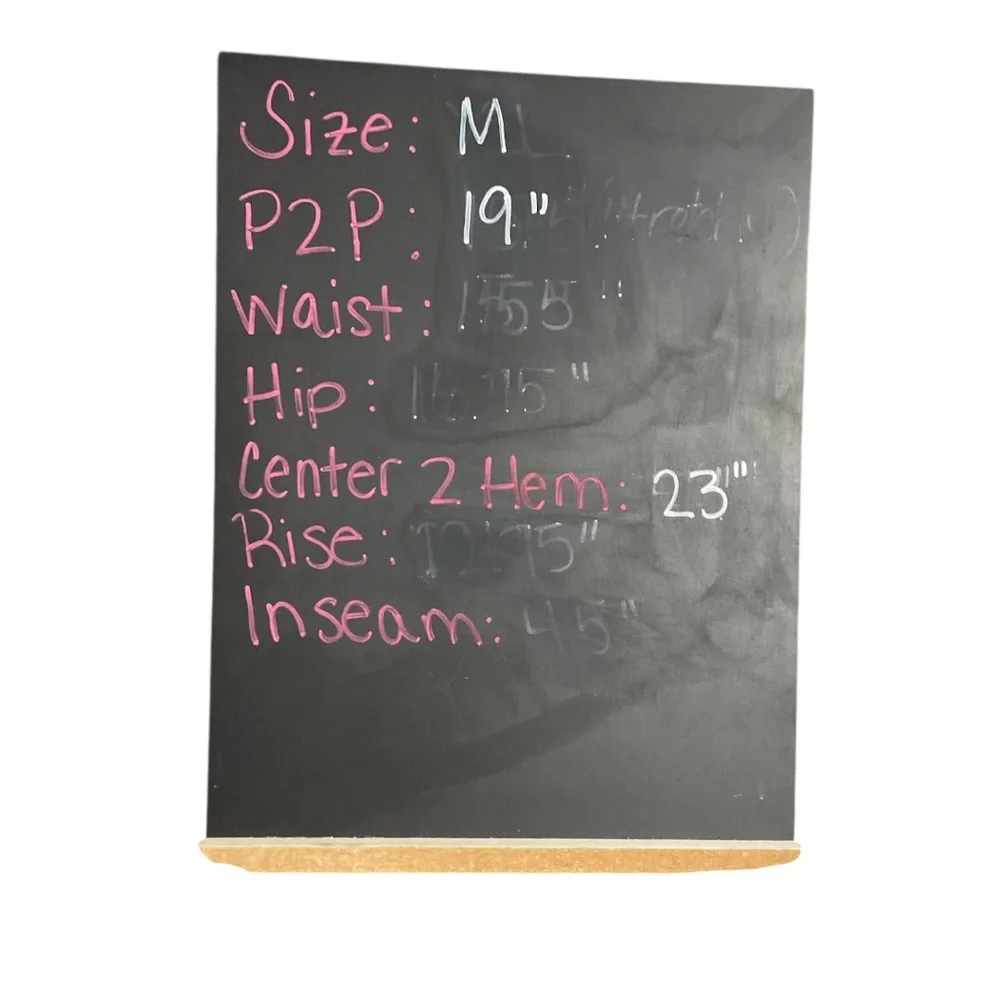 Size: M
P2P: 19"
Waist:
Hip:
Center 2 Hem: 23"
Rise:
Inseam: